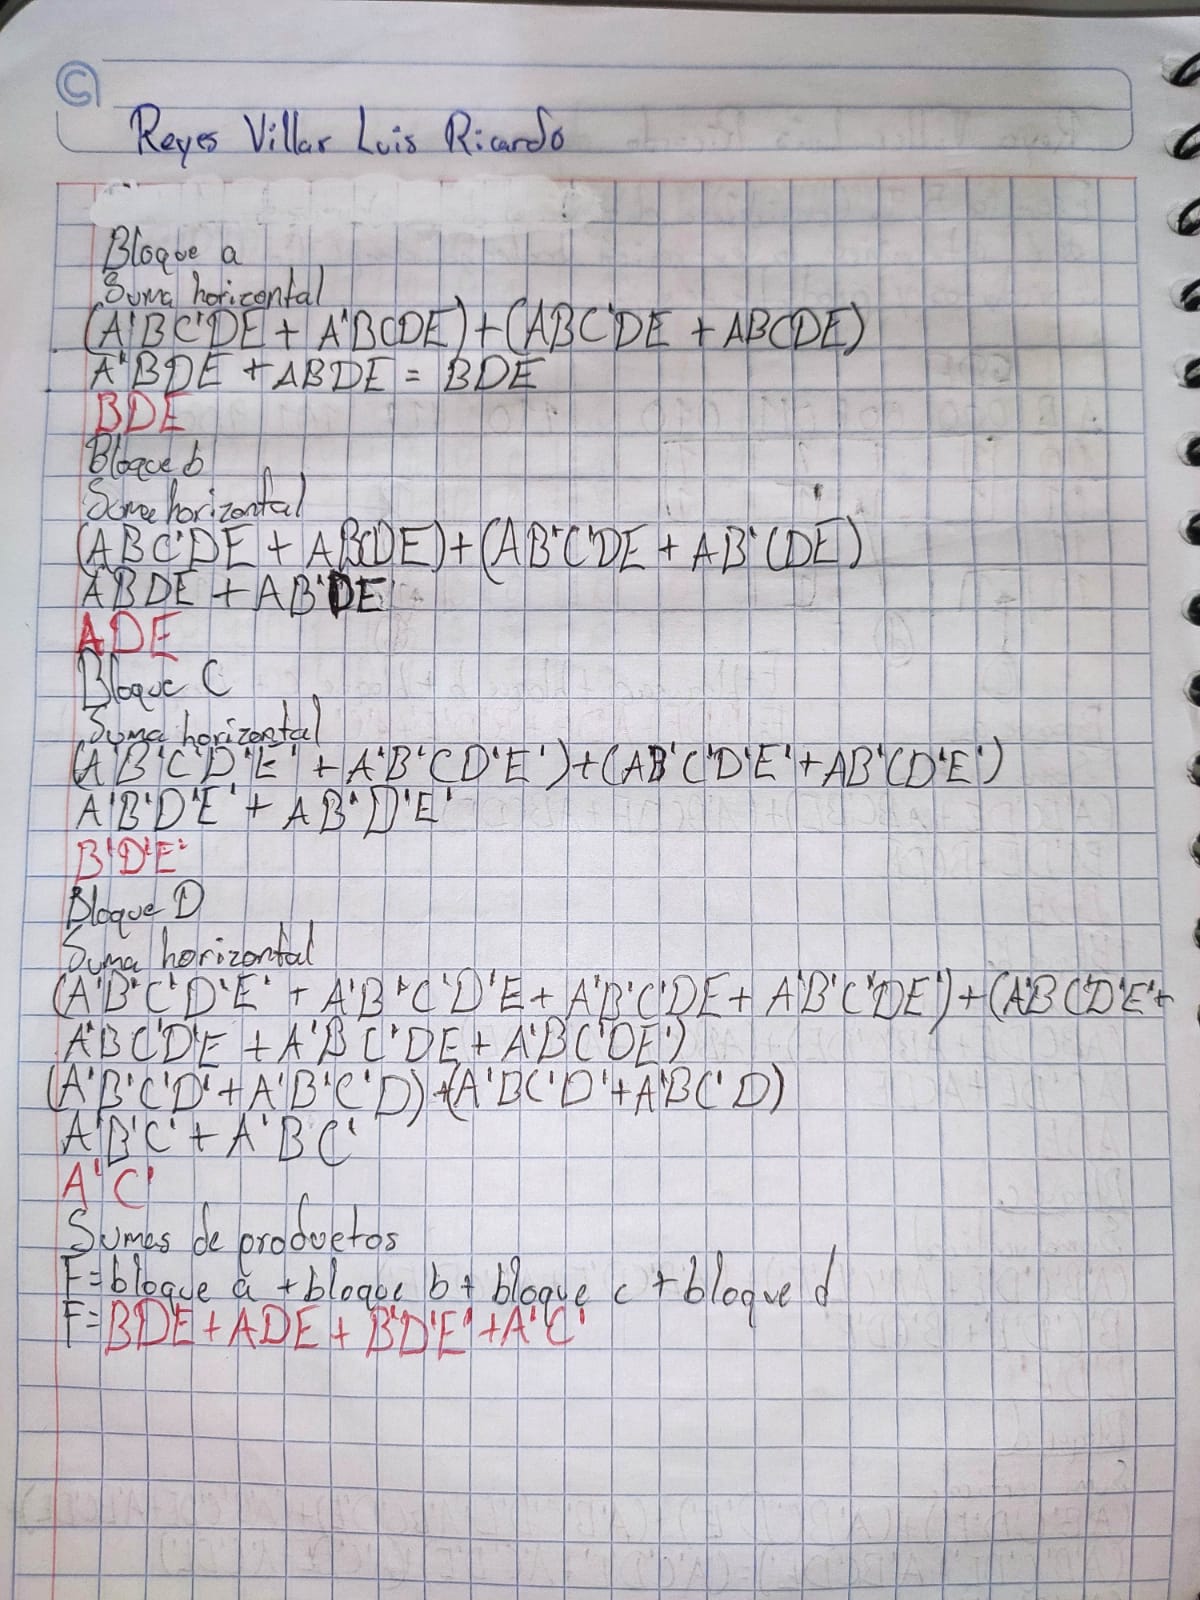 Reyes Villar Luis Ricardo
Bloque a
Suma horizontal
(A'BC'DE + A'BCDE)+(ABC'DE + ABCDE)
A'BDE + ABDE = BDE
BDE
Bloque b
Suma horizontal
(ABC'DE + ABCDE)+(AB'C'DE + AB'CDE)
ABDE + AB'DE
ADE
Bloque C
Suma horizontal
(A'B'C'D'E' + A'B'CD'E')+(AB'C'D'E'+AB'CD'E')
A'B'D'E' + AB'D'E'
B'D'E'
Bloque D
Suma horizontal
(A'B'C'D'E' + A'B'C'D'E + A'B'C'DE + A'B'C'DE')+(A'BC'D'E'+
A'BC'D'E + A'BC'DE + A'BC'DE')
(A'B'C'D' + A'B'C'D)+(A'BC'D'+A'BC'D)
A'B'C' + A'BC'
A'C'
Sumas de productos
F=bloque a +bloque b+ bloque c +bloque d
F=BDE+ADE+B'D'E'+A'C'